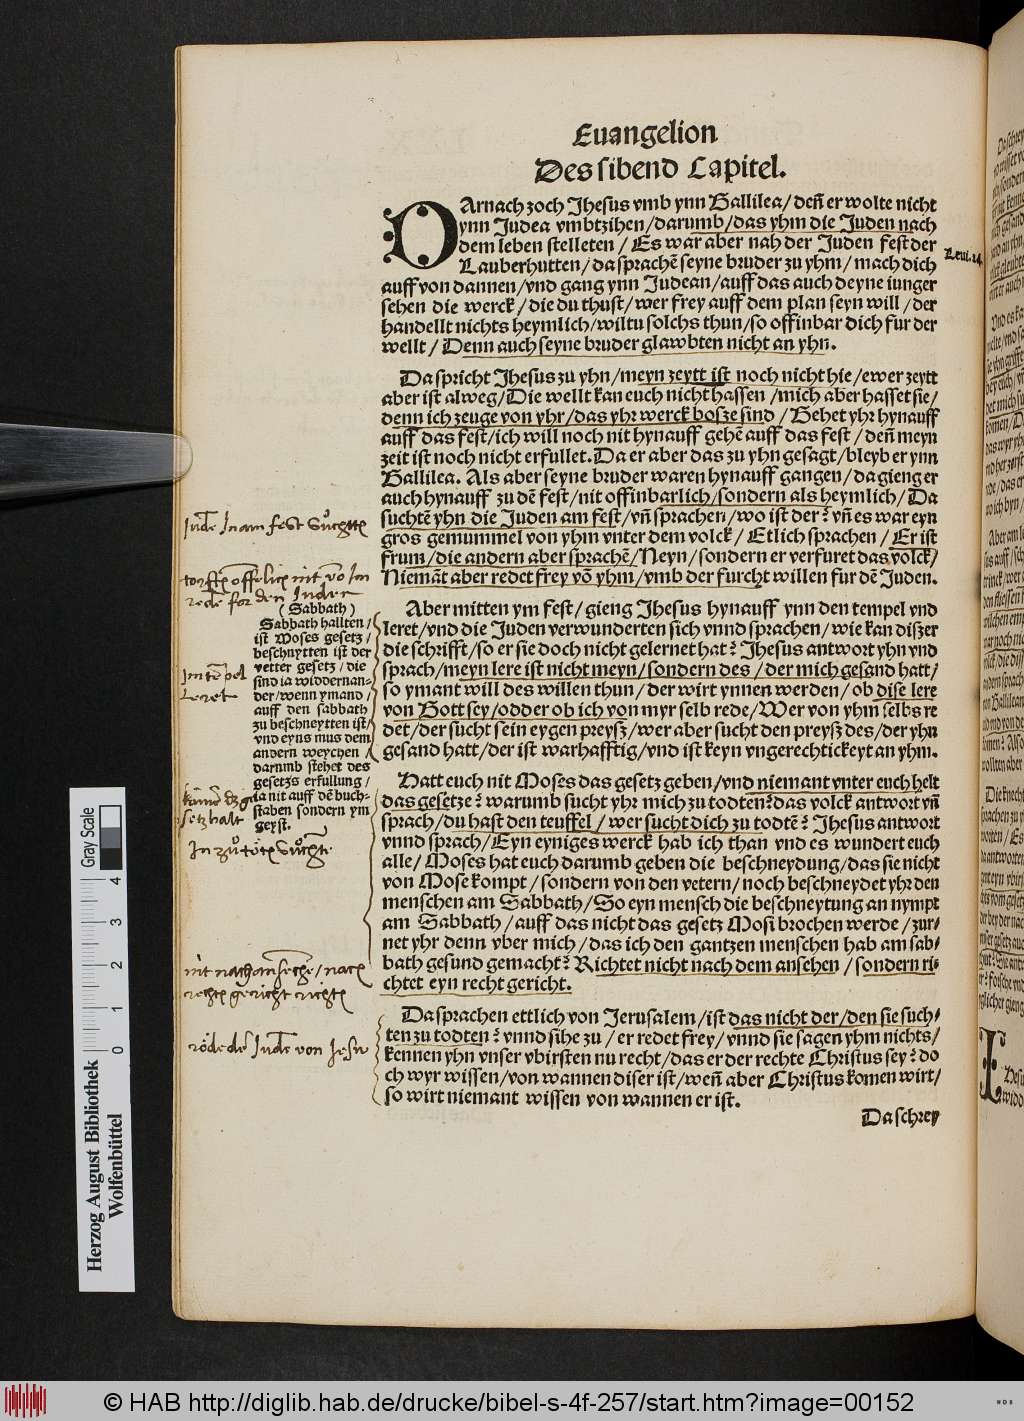 Euangelion
Des sibend Capitel.
DArnach zoch Jhesus vmb ynn Gallilea / deñ er wolte nicht
ynn Judea vmbtzihen / darumb / das yhm die Juden nach
dem leben stelleten / Es war aber nah der Juden fest der
Lauberhutten / da sprachẽ seyne bruder zu yhm / mach dich
auff von dannen / vnd gang ynn Judean / auff das auch deyne iunger
sehen die werck / die du thust / wer frey auff dem plan seyn will / der
handellt nichts heymlich / wiltu solchs thun / so offinbar dich fur der
wellt / Denn auch seyne bruder glawbten nicht an yhn.
Leui. 24.
Da spricht Jhesus zu yhn / meyn zeytt ist noch nicht hie / ewer zeytt
aber ist alweg / Die wellt kan euch nicht hassen / mich aber hasset sie /
denn ich zeuge von yhr / das yhr werck bosze sind / Gehet yhr hynauff
auff das fest / ich will noch nit hynauff gehẽ auff das fest / deñ meyn
zeit ist noch nicht erfullet. Da er aber das zu yhn gesagt / bleyb er ynn
Gallilea. Als aber seyne bruder waren hynauff gangen / da gieng er
auch hynauff zu dẽ fest / nit offinbarlich / sondern als heymlich / Da
suchtẽ yhn die Juden am fest / vñ sprachen / wo ist der? vñ es war eyn
gros gemummel von yhm vnter dem volck / Etlich sprachen / Er ist
frum / die andern aber sprachẽ / Neyn / sondern er verfuret das volck /
Niemãt aber redet frey võ yhm / vmb der furcht willen fur dẽ Juden.
Aber mitten ym fest / gieng Jhesus hynauff ynn den tempel vnd
leret / vnd die Juden verwunderten sich vnnd sprachen / wie kan diszer
die schrifft / so er sie doch nicht gelernet hat? Jhesus antwort yhn vnd
sprach / meyn lere ist nicht meyn / sondern des / der mich gesand hatt /
so ymant will des willen thun / der wirt ynnen werden / ob dise lere
von Gott sey / odder ob ich von myr selb rede / Wer von yhm selbs re
det / der sucht sein eygen preysz / wer aber sucht den preysz des / der yhn
gesand hatt / der ist warhafftig / vnd ist keyn vngerechtickeyt an yhm.
(Sabbath)
Sabbath hallten /
ist Moses gesetz /
beschnytten ist der
vetter gesetz / die
sind ia widdernan-
der / wenn ymand /
auff den sabbath
zu beschneytten ist /
vnd eyns mus dem
andern weychen /
darumb stehet des
gesetzs erfullung /
ia nit auff dẽ buch-
staben sondern ym
geyst.
Hatt euch nit Moses das gesetz geben / vnd niemant vnter euch helt
das gesetze? warumb sucht yhr mich zu todten? das volck antwort vñ
sprach / du hast den teuffel / wer sucht dich zu todtẽ? Jhesus antwort
vnnd sprach / Eyn eyniges werck hab ich than vnd es wundert euch
alle / Moses hat euch darumb geben die beschneydung / das sie nicht
von Mose kompt / sondern von den vetern / noch beschneydet yhr den
menschen am Sabbath / So eyn mensch die beschneytung an nympt
am Sabbath / auff das nicht das gesetz Mosi brochen werde / zur-
net yhr denn vber mich / das ich den gantzen menschen hab am sab-
bath gesund gemacht? Richtet nicht nach dem ansehen / sondern ri-
chtet eyn recht gericht.
nit nach ansechẽ / nach
rechtẽ gericht richtẽ
Da sprachen ettlich von Jerusalem / ist das nicht der / den sie such-
ten zu todten? vnnd sihe zu / er redet frey / vnnd sie sagen yhm nichts /
kennen yhn vnser vbirsten nu recht / das er der rechte Christus sey? do
ch wyr wissen / von wannen diser ist / weñ aber Christus komen wirt /
so wirt niemant wissen von wannen er ist.
Da schrey
Gray Scale
Herzog August Bibliothek
Wolfenbüttel
© HAB http://diglib.hab.de/drucke/bibel-s-4f-257/start.htm?image=00152